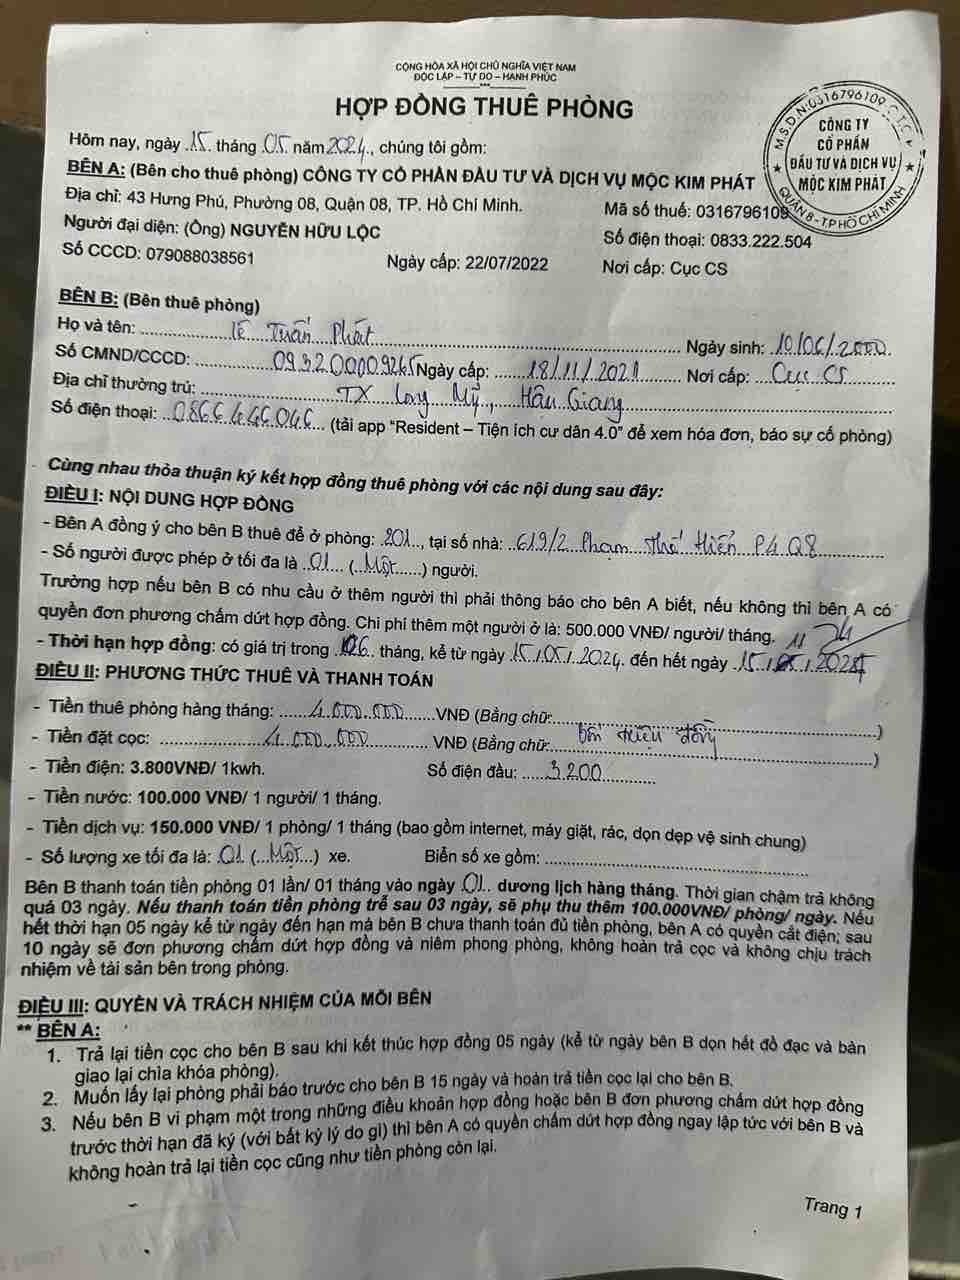 CỘNG HÒA XÃ HỘI CHỦ NGHĨA VIỆT NAM
ĐỘC LẬP – TỰ DO – HẠNH PHÚC
HỢP ĐỒNG THUÊ PHÒNG
M.S.D.N:0316796109
CÔNG TY
CỔ PHẦN
ĐẦU TƯ VÀ DỊCH VỤ
MỘC KIM PHÁT
QUẬN 8 - T.P HỒ CHÍ MINH
Hôm nay, ngày 15 tháng 05 năm 2024, chúng tôi gồm:
BÊN A: (Bên cho thuê phòng) CÔNG TY CỔ PHẦN ĐẦU TƯ VÀ DỊCH VỤ MỘC KIM PHÁT
Địa chỉ: 43 Hưng Phú, Phường 08, Quận 08, TP. Hồ Chí Minh. Mã số thuế: 0316796109
Người đại diện: (Ông) NGUYỄN HỮU LỘC Số điện thoại: 0833.222.504
Số CCCD: 079088038561 Ngày cấp: 22/07/2022 Nơi cấp: Cục CS
BÊN B: (Bên thuê phòng)
Họ và tên: Lê Tuấn Phát Ngày sinh: 10/06/2000
Số CMND/CCCD: 093200009265 Ngày cấp: 18/11/2021 Nơi cấp: Cục CS
Địa chỉ thường trú: TX Long Mỹ, Hậu Giang
Số điện thoại: 0866446046 (tải app “Resident – Tiện ích cư dân 4.0” để xem hóa đơn, báo sự cố phòng)
Cùng nhau thỏa thuận ký kết hợp đồng thuê phòng với các nội dung sau đây:
ĐIỀU I: NỘI DUNG HỢP ĐỒNG
- Bên A đồng ý cho bên B thuê để ở phòng: 201, tại số nhà: 619/2 Phạm Thế Hiển P4 Q8
- Số người được phép ở tối đa là 01 (Một) người.
Trường hợp nếu bên B có nhu cầu ở thêm người thì phải thông báo cho bên A biết, nếu không thì bên A có
quyền đơn phương chấm dứt hợp đồng. Chi phí thêm một người ở là: 500.000 VNĐ/ người/ tháng. 11
- Thời hạn hợp đồng: có giá trị trong 06 tháng, kể từ ngày 15/05/2024 đến hết ngày 15
ĐIỀU II: PHƯƠNG THỨC THUÊ VÀ THANH TOÁN
- Tiền thuê phòng hàng tháng: 4.000.000 VNĐ (Bằng chữ: )
- Tiền đặt cọc: 4.000.000 VNĐ (Bằng chữ: bốn triệu đồng )
- Tiền điện: 3.800VNĐ/ 1kwh. Số điện đầu: 3200
- Tiền nước: 100.000 VNĐ/ 1 người/ 1 tháng.
- Tiền dịch vụ: 150.000 VNĐ/ 1 phòng/ 1 tháng (bao gồm internet, máy giặt, rác, dọn dẹp vệ sinh chung)
- Số lượng xe tối đa là: 01 (Một) xe. Biển số xe gồm:
Bên B thanh toán tiền phòng 01 lần/ 01 tháng vào ngày 01 dương lịch hàng tháng. Thời gian chậm trả không
quá 03 ngày. Nếu thanh toán tiền phòng trễ sau 03 ngày, sẽ phụ thu thêm 100.000VNĐ/ phòng/ ngày. Nếu
hết thời hạn 05 ngày kể từ ngày đến hạn mà bên B chưa thanh toán đủ tiền phòng, bên A có quyền cắt điện; sau
10 ngày sẽ đơn phương chấm dứt hợp đồng và niêm phong phòng, không hoàn trả cọc và không chịu trách
nhiệm về tài sản bên trong phòng.
ĐIỀU III: QUYỀN VÀ TRÁCH NHIỆM CỦA MỖI BÊN
** BÊN A:
1. Trả lại tiền cọc cho bên B sau khi kết thúc hợp đồng 05 ngày (kể từ ngày bên B dọn hết đồ đạc và bàn
giao lại chìa khóa phòng).
2. Muốn lấy lại phòng phải báo trước cho bên B 15 ngày và hoàn trả tiền cọc lại cho bên B.
3. Nếu bên B vi phạm một trong những điều khoản hợp đồng hoặc bên B đơn phương chấm dứt hợp đồng
trước thời hạn đã ký (với bất kỳ lý do gì) thì bên A có quyền chấm dứt hợp đồng ngay lập tức với bên B và
không hoàn trả lại tiền cọc cũng như tiền phòng còn lại.
Trang 1